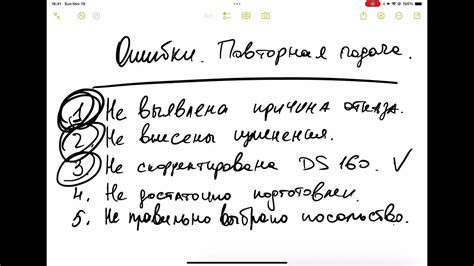 16:41 Sun Nov 19
100%
Ошибки. Повторная подача.
1 Не выявлена причина отказа.
2 Не внесены изменения.
3 Не скорректирована DS 160. ✓
4. Не достаточно подготовлен.
5. Не правильно выбрано посольство.